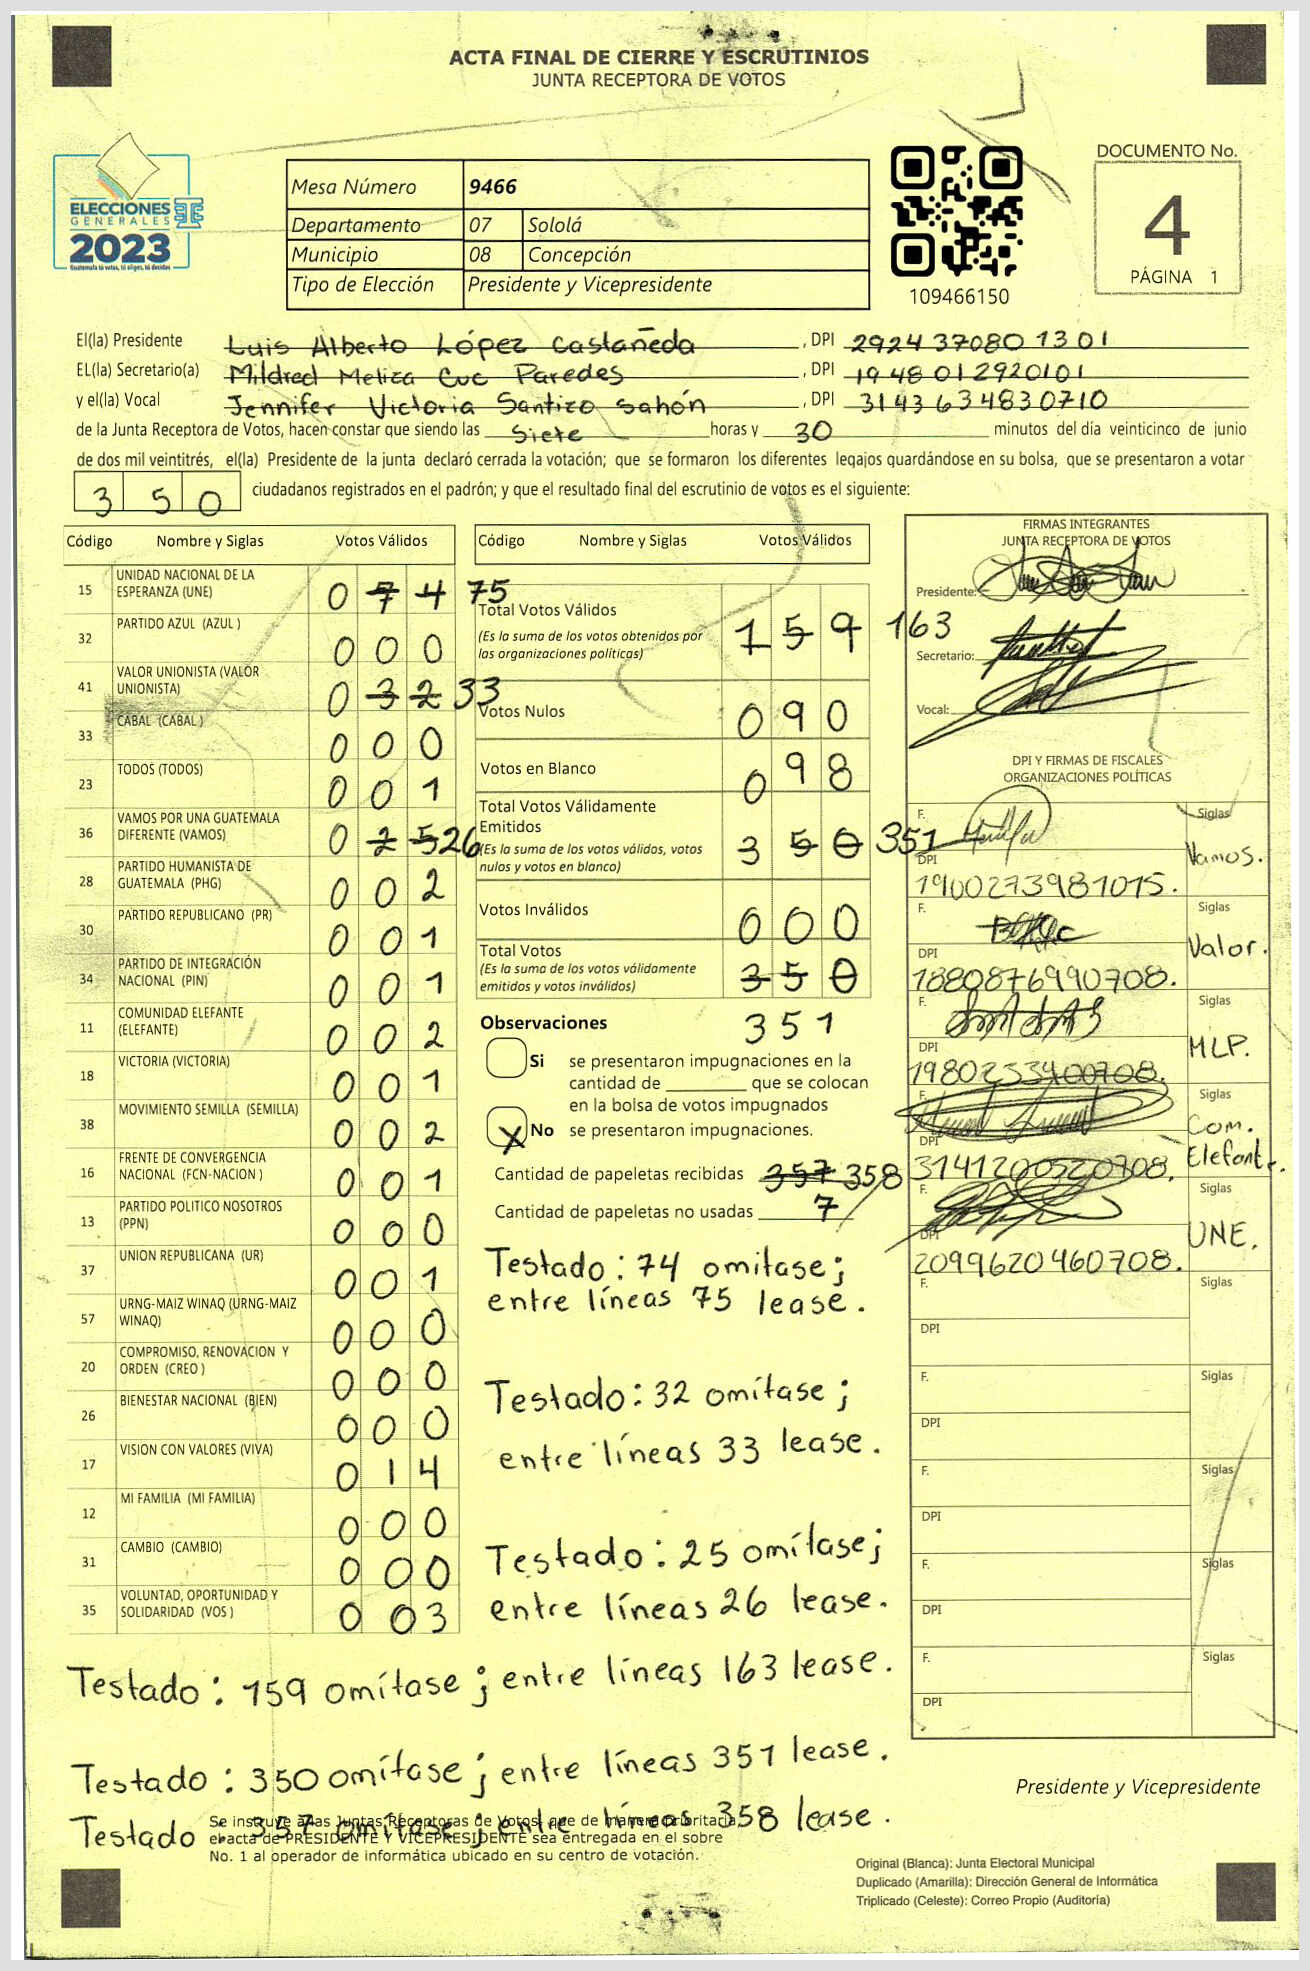 ACTA FINAL DE CIERRE Y ESCRUTINIOS
JUNTA RECEPTORA DE VOTOS
ELECCIONES
GENERALES
2023
Guatemala tú votas, tú eliges, tú decides
Mesa Número 9466
Departamento 07 Sololá
Municipio 08 Concepción
Tipo de Elección Presidente y Vicepresidente
109466150
DOCUMENTO No.
4
PÁGINA 1
El(la) Presidente Luis Alberto López Castañeda, DPI 2924 37080 1301
EL(la) Secretario(a) Mildred Meliza Cuc Paredes, DPI 1948 012920101
y el(la) Vocal Jennifer Victoria Santizo Sahón, DPI 3143634830710
de la Junta Receptora de Votos, hacen constar que siendo las Siete horas y 30 minutos del día veinticinco de junio
de dos mil veintitrés, el(la) Presidente de la junta declaró cerrada la votación; que se formaron los diferentes legajos guardándose en su bolsa, que se presentaron a votar
350 ciudadanos registrados en el padrón; y que el resultado final del escrutinio de votos es el siguiente:
Código Nombre y Siglas Votos Válidos
15 UNIDAD NACIONAL DE LA ESPERANZA (UNE) 0 7 4 75
32 PARTIDO AZUL (AZUL ) 0 0 0
41 VALOR UNIONISTA (VALOR UNIONISTA) 0 3 2 33
33 CABAL (CABAL ) 0 0 0
23 TODOS (TODOS) 0 0 1
36 VAMOS POR UNA GUATEMALA DIFERENTE (VAMOS) 0 2 5 26
28 PARTIDO HUMANISTA DE GUATEMALA (PHG) 0 0 2
30 PARTIDO REPUBLICANO (PR) 0 0 1
34 PARTIDO DE INTEGRACIÓN NACIONAL (PIN) 0 0 1
11 COMUNIDAD ELEFANTE (ELEFANTE) 0 0 2
18 VICTORIA (VICTORIA) 0 0 1
38 MOVIMIENTO SEMILLA (SEMILLA) 0 0 2
16 FRENTE DE CONVERGENCIA NACIONAL (FCN-NACION ) 0 0 1
13 PARTIDO POLITICO NOSOTROS (PPN) 0 0 0
37 UNION REPUBLICANA (UR) 0 0 1
57 URNG-MAIZ WINAQ (URNG-MAIZ WINAQ) 0 0 0
20 COMPROMISO, RENOVACION Y ORDEN (CREO ) 0 0 0
26 BIENESTAR NACIONAL (BIEN) 0 0 0
17 VISION CON VALORES (VIVA) 0 1 4
12 MI FAMILIA (MI FAMILIA) 0 0 0
31 CAMBIO (CAMBIO) 0 0 0
35 VOLUNTAD, OPORTUNIDAD Y SOLIDARIDAD (VOS ) 0 0 3
Código Nombre y Siglas Votos Válidos
Total Votos Válidos 1 5 9 163
(Es la suma de los votos obtenidos por
las organizaciones políticas)
Votos Nulos 0 9 0
Votos en Blanco 0 9 8
Total Votos Válidamente
Emitidos 3 5 0 351
(Es la suma de los votos válidos, votos
nulos y votos en blanco)
Votos Inválidos 0 0 0
Total Votos 3 5 0
(Es la suma de los votos válidamente
emitidos y votos inválidos)
351
Observaciones
Si se presentaron impugnaciones en la
cantidad de ________ que se colocan
en la bolsa de votos impugnados
X No se presentaron impugnaciones.
Cantidad de papeletas recibidas 357 358
Cantidad de papeletas no usadas 7
Testado: 74 omitase;
entre líneas 75 lease.
Testado: 32 omítase;
entre líneas 33 lease.
Testado: 25 omítase;
entre líneas 26 lease.
Testado: 159 omítase; entre líneas 163 lease.
Testado: 350 omítase; entre líneas 351 lease.
Testado: 357 omítase; entre líneas 358 lease.
FIRMAS INTEGRANTES
JUNTA RECEPTORA DE VOTOS
Presidente:
Secretario:
Vocal:
DPI Y FIRMAS DE FISCALES
ORGANIZACIONES POLÍTICAS
F. Siglas
Vamos.
DPI
1900273981015.
F. Siglas
Valor.
DPI
1880876990708.
F. Siglas
MLP.
DPI
1980253400708.
F. Siglas
Com.
Elefante.
DPI
3141200520708.
F. Siglas
UNE.
DPI
2099620460708.
F. Siglas
DPI
F. Siglas
DPI
F. Siglas
DPI
F. Siglas
DPI
F. Siglas
DPI
Presidente y Vicepresidente
Se instruye a las Juntas Receptoras de Votos, que de manera prioritaria
el acta de PRESIDENTE Y VICEPRESIDENTE sea entregada en el sobre
No. 1 al operador de informática ubicado en su centro de votación.
Original (Blanca): Junta Electoral Municipal
Duplicado (Amarilla): Dirección General de Informática
Triplicado (Celeste): Correo Propio (Auditoría)